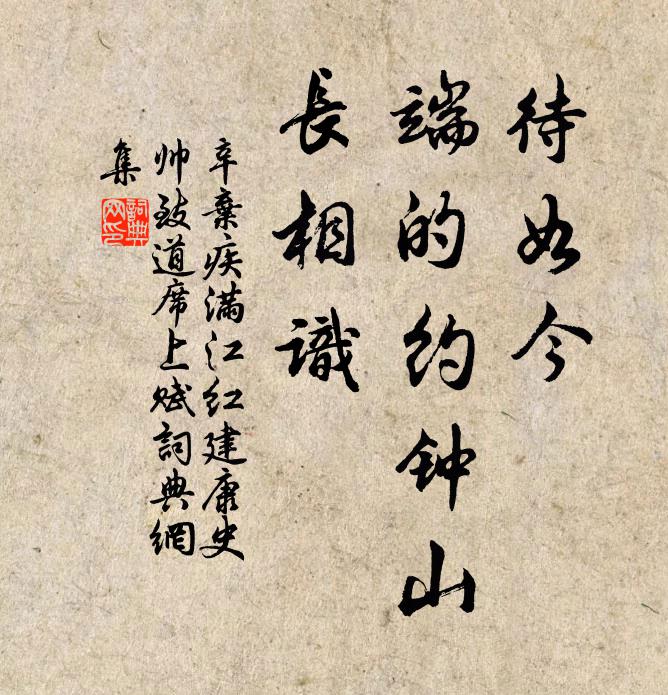 待如今
端的约钟山
長相識
辛棄疾满江红建康史
帅致道席上赋詞典網
集
詞典
网印